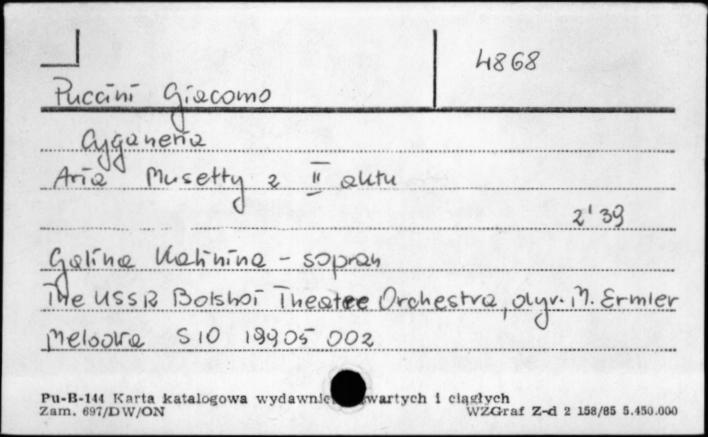 4868
Puccini Giacomo
Cyganeria
Aria Musetty z II aktu
2'39
Galina Kalinina - sopran
The USSR Bolshoi Theatre Orchestra, dyr. M. Ermler
Melodia S10 19905 002
Pu-B-144 Karta katalogowa wydawnic wartych i ciągłych
Zam. 697/DW/ON
WZGraf Z-d 2 158/85 5.450.000